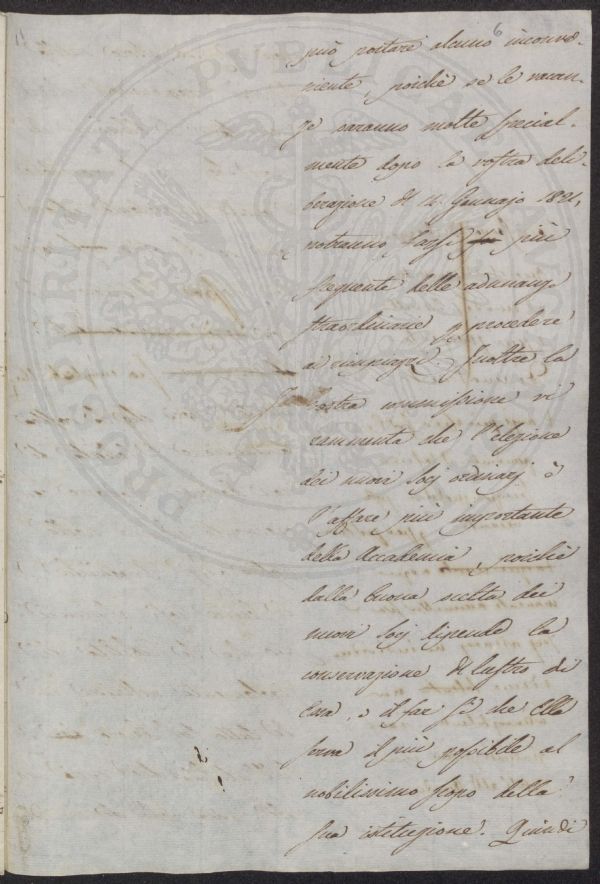 6
può portare alcuno inconve-
niente, poichè se le vacan-
ze saranno molte special-
mente dopo la vostra deli-
berazione di 11. Gennajo 1821,
potranno farsi più
frequente delle adunanze
straordinarie p procedere
ai rimpiazzi. Inoltre la
vostra commissione vi
rammenta che l'elezione
dei nuovi Socj ordinarj è
l'affare più importante
della Accademia, poichè
dalla buona scelta dei
nuovi Socj dipende la
conservazione di lustro di
Essa, e il far sì che Ella
serva il più possibile al
nobilissimo scopo della
sua istituzione. Quindi
PROSPERITATI PVBLICAE